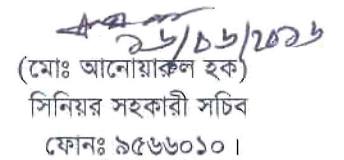 ১৬/০৬/২০১৬
(মোঃ আনোয়ারুল হক)
সিনিয়র সহকারী সচিব
ফোনঃ ৯৫৬৬০১০।